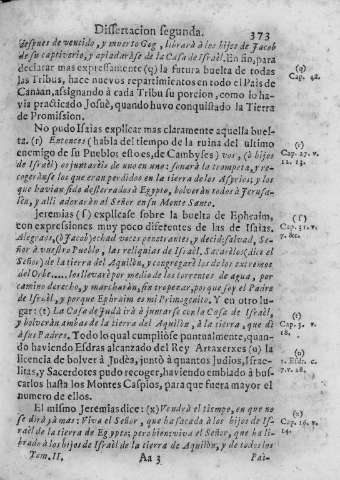 Dissertacion segunda. 373
despues de vencido, y muerto Gog, librarà à los hijos de Jacob
de su captiverio, y apiadaràse de la Casa de Israël. En fin, para
declarar mas expressamente (q) la futura buelta de todas
las Tribus, hace nuevos repartimientos en todo el Pais de
Canaan, assignando à cada Tribu su porcion, como lo ha-
via practicado Josuè, quando huvo conquistado la Tierra
de Promission.
No pudo Isaias explicar mas claramente aquella buel-
ta. (r) Entonces (habla del tiempo de la ruina del ultimo
enemigo de su Pueblo; esto es, de Cambyses) vos, (ò hijos
de Israël) os juntarèis de uno en uno: sonarà la trompeta, y re-
cogeranse los que eran perdidos en la tierra de los Asyrios; y los
que havian sido desterrados à Egypto, bolveràn todos à Jerusa-
lèn, y alli adoraràn al Señor en su Monte Santo.
Jeremias (s) explicase sobre la buelta de Ephraim,
con expressiones muy poco diferentes de las de Isaias.
Alegraos, (ò Jacob) echad voces penetrantes, y decid: salvad, Se-
ñor à vuestro Pueblo, las reliquias de Israël. Sacarèlos (dice el
Señor) de la tierra del Aquilòn, y congregarè los de los extremos
del Orbe..... los llevarè por medio de los torrentes de agua, por
camino derecho, y marcharàn, sin tropezar, porque soy el Padre
de Israël, y porque Ephraim es mi Primogenito. Y en otro lu-
gar: (t) La Casa de Judà irà à juntarse con la Casa de Israël,
y bolveràn ambas de la tierra del Aquilòn, à la tierra, que dì
à sus Padres. Todo lo qual cumpliòse puntualmente, quan-
do haviendo Esdras alcanzado del Rey Artaxerxes (u) la
licencia de bolver à Judèa, juntò à quantos Judios, Israe-
litas, y Sacerdotes pudo recoger, haviendo embiado à bus-
carlos hasta los Montes Caspios, para que fuera mayor el
numero de ellos.
El mismo Jeremias dice: (x) Vendrà el tiempo, en que no
se dirà yà mas: Viva el Señor, que ha sacado à los hijos de Is-
raël de la tierra de Egypto; pero bien: viva el Señor, que ha li-
brado à los hijos de Israël de la tierra de Aquilòn, y de todos los
Tom. II. Aa 3 Pai-
(q)
Cap. 48.
(r)
Cap. 27. v.
12. 13.
(s)
Cap. 31. v.
7. &c.
(t)
Cap. 3. v.
18.
(u)
1. Esdr. c.
7. v. 28.
(x)
Cap. 16. v.
14.